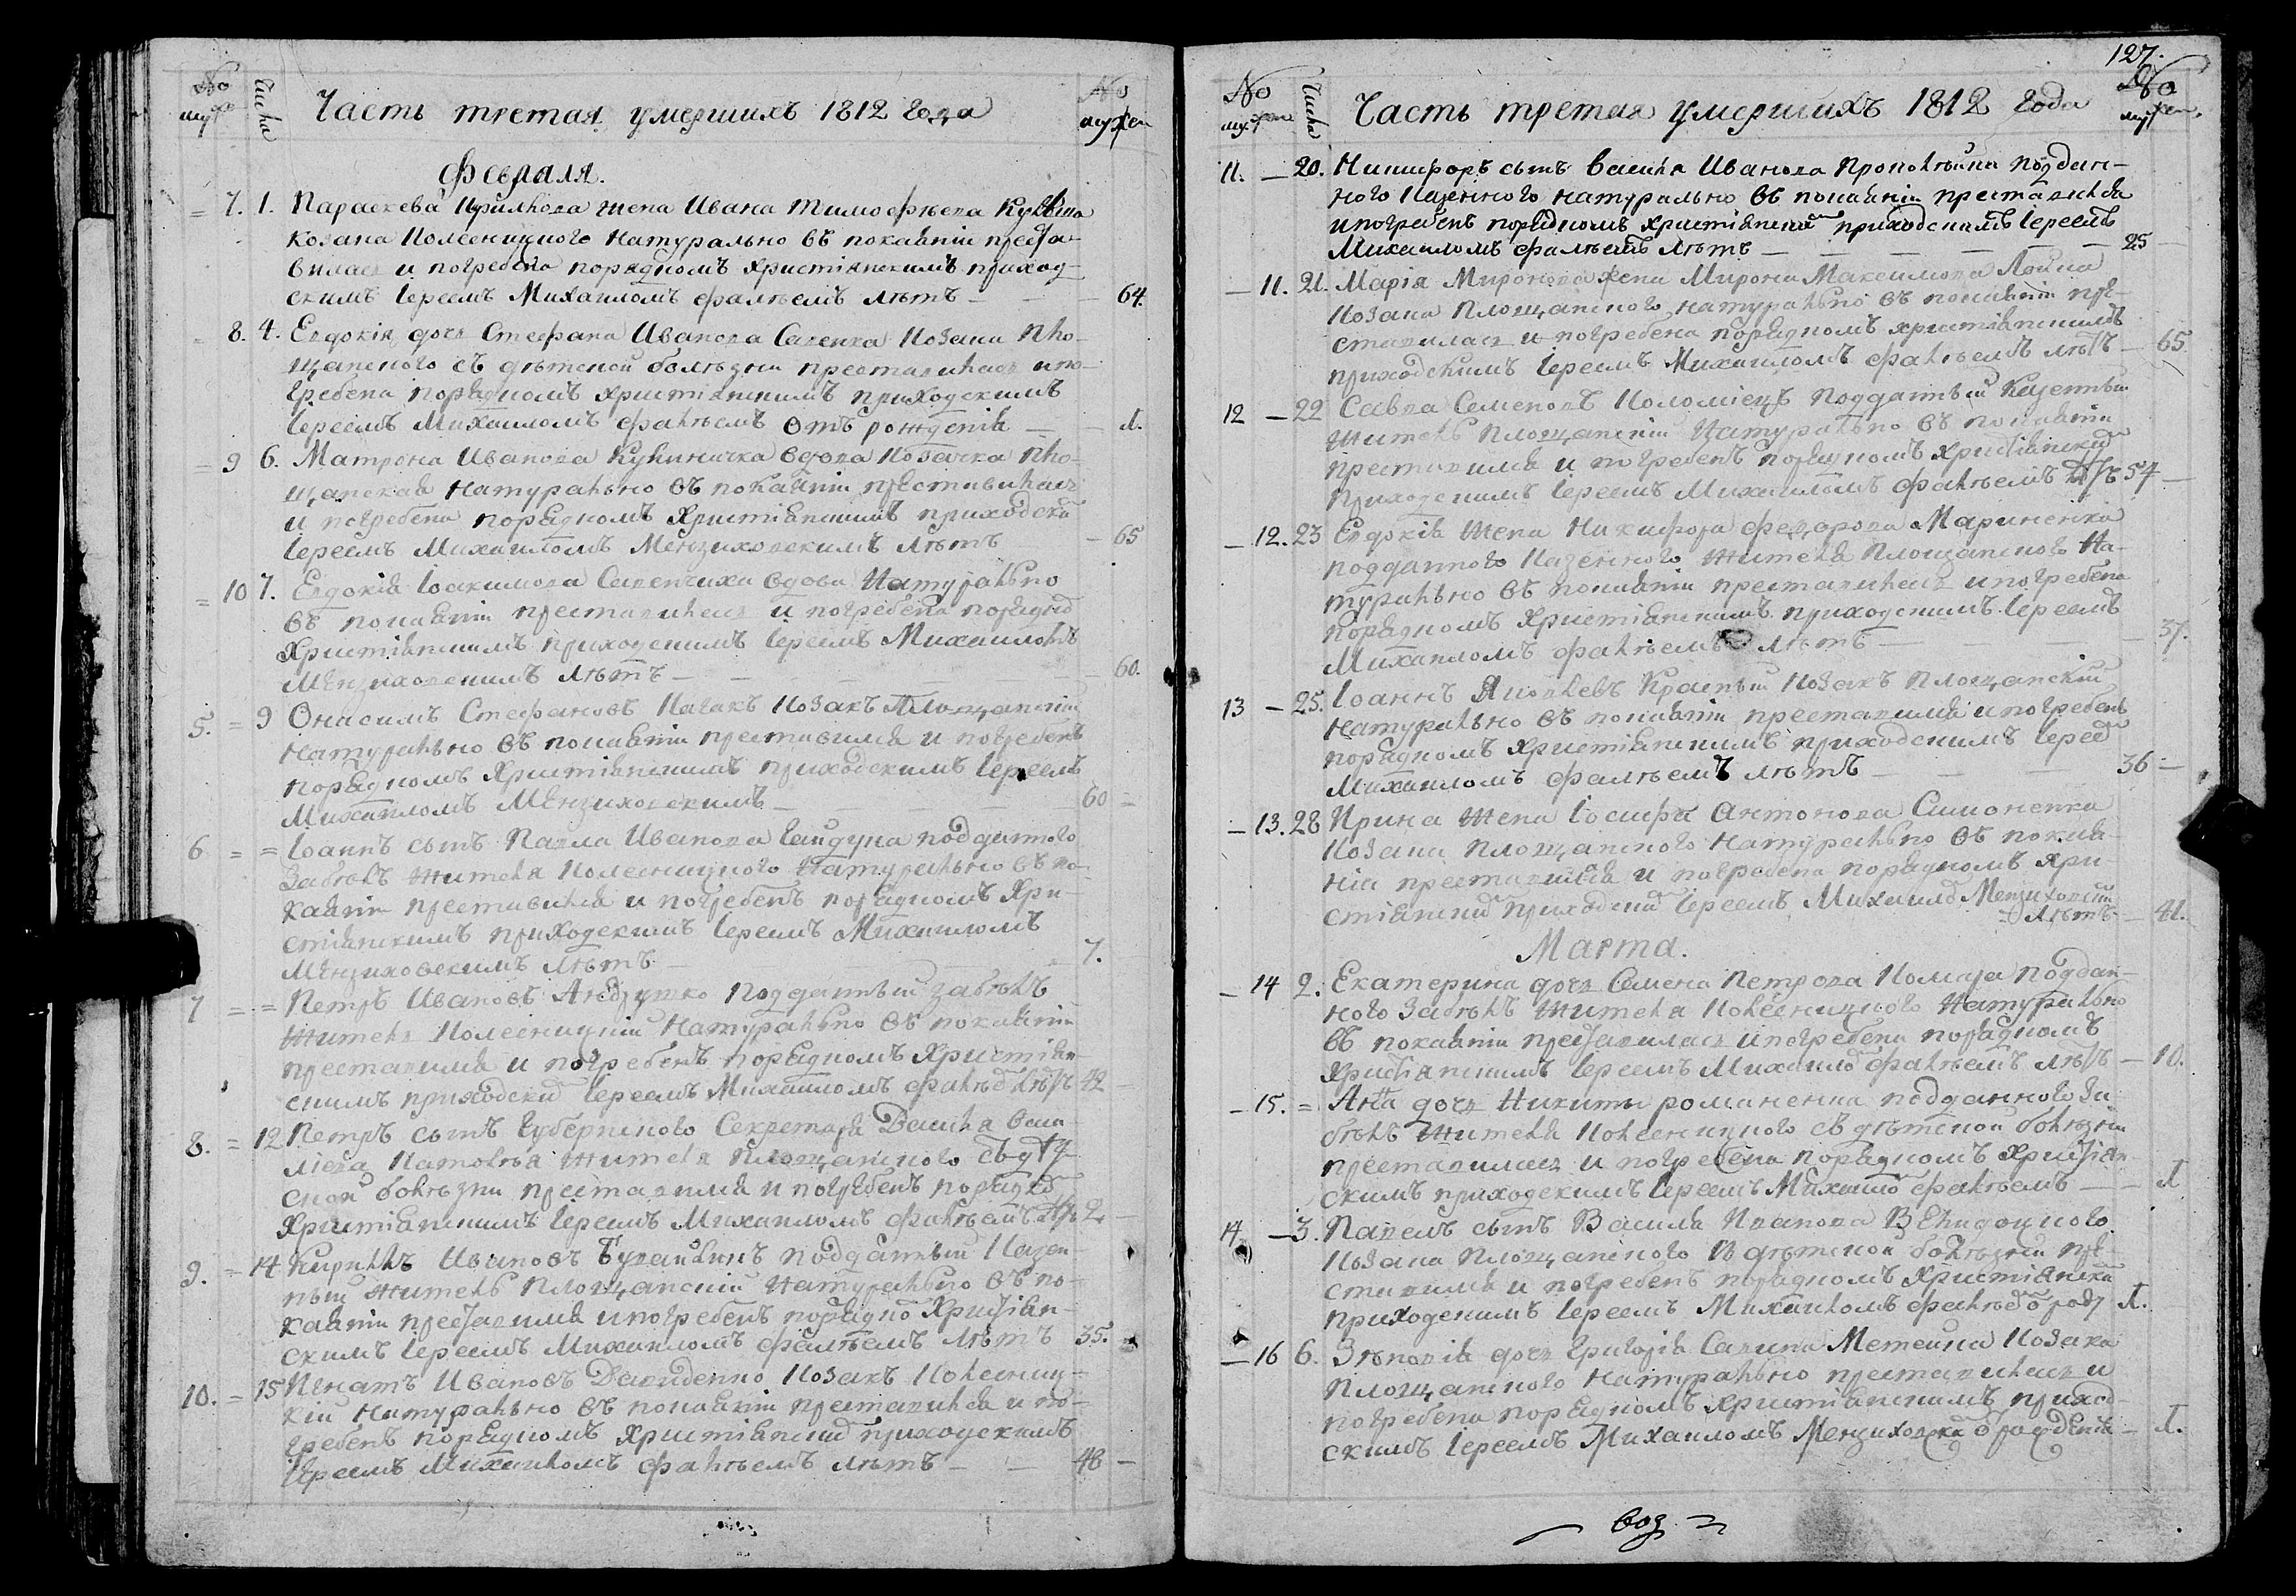 № муж жен Числа Часть третая умершихъ 1812 года № муж жен
Февраля.
= 7. 1. Параскева жена Ивана Тимофѣева
козака Колесницкого натурально въ покаянiи преста-
вилась и погребена порядкомъ христiянскимъ приход-
скимъ Iереемъ Михаиломъ Фалѣемъ лѣтъ — — — 64.
= 8. 4. Евдокiя дочь Стефана Иванова Савенка козака Пло-
щанского съ дѣтской болѣзни преставилась и по-
гребена порядкомъ христiянскимъ приходскимъ
Iереемъ Михаиломъ Фалѣемъ отъ рожденiя — — 1.
= 9 6. Матрона Иванова вдова козачка Пло-
щанская натурально въ покаянiи преставилась
и погребена порядкомъ христiянскимъ приходски
Iереемъ Михаиломъ Мензиховскимъ лѣтъ — 65
= 10 7. Евдокiя Iоакимова Савенчиха вдова натурально
въ покаянiи преставилась и погребена порядко
христiянскимъ приходскимъ Iереемъ Михаиломъ
Мензиховскимъ лѣтъ — — — — 60.
5. = 9 Онисимъ Стефановъ козакъ Площанскiй
натурально въ покаянiи преставился и погребенъ
порядкомъ христiянскимъ приходскимъ Iереемъ
Михаиломъ Мензиховскимъ — — — 60 =
6 = = Iоаннъ сынъ Павла Иванова Гайдука подданного
Забѣлъ жителя Колесницкого натурально въ по-
каянiи преставился и погребенъ порядкомъ хри-
стiянскимъ приходскимъ Iереемъ Михаиломъ
Мензиховскимъ лѣтъ — — — 7.
7 = = Петръ Ивановъ подданный Забѣлъ
житель Колесницкiй натурально въ покаянiи
преставился и погребенъ порядкомъ христiян-
скимъ приходски Iереемъ Михаиломъ Фалѣе лѣтъ 42 —
8. = 12 Петръ сынъ Губернского Секретаря Василя Васи-
лiева жителя Площанского съ дѣт-
ской болѣзни преставился и погребенъ порядко
христiянскимъ Iереемъ Михаиломъ Фалѣемъ лѣтъ 2. —
9. = 14 Кирилъ Ивановъ подданный Казен-
ный житель Площанскiй натурально въ по-
каянiи преставился и погребенъ порядко христiян-
скимъ Iереемъ Михаиломъ Фалѣемъ лѣтъ 35. =
10. = 15 Игнатъ Ивановъ Давиденко козакъ Колесниц-
кiй натурально въ покаянiи преставился и по-
гребенъ порядкомъ христiянски приходскимъ
Iереемъ Михаиломъ Фалѣемъ лѣтъ — — 48 —
127.
№ муж жен Числа Часть третая умершихъ 1812 года № муж жен.
11. — 20. Никифоръ сынъ Василя Иванова поддан-
ного Казенного натурально въ покаянiи преставился
и погребенъ порядкомъ христiянски приходскимъ Iереемъ
Михаиломъ Фалѣемъ лѣтъ — — — — — 25 —
— 11. 21. Марiя Миронова жена Мирона Максимова
козака Площанского натурально въ покаянiи пре-
ставилась и погребена порядкомъ христiянскимъ
приходскимъ Iереемъ Михаиломъ Фалѣемъ лѣтъ — 65.
12 — 22 Савва Семеновъ Коломiецъ подданный Казенный
житель Площанскiй натурально въ покаянiи
преставился и погребенъ порядкомъ христiянски
приходскимъ Iереемъ Михаиломъ Фалѣемъ лѣтъ 54 —
— 12. 23 Евдокiя жена Никифора Федорова Мариненка
подданного Казенного жителя Площанского на-
турально въ покаянiи преставилась и погребена
порядкомъ христiянскимъ приходскимъ Iереемъ
Михаиломъ Фалѣемъ лѣтъ — — — 37.
13 — 25. Iоаннъ Яковлевъ козакъ Площанскiй
натурально въ покаянiи преставился и погребенъ
порядкомъ христiянскимъ приходскимъ Iерее
Михаиломъ Фалѣемъ лѣтъ — — — 36 —
— 13. 28 Ирина жена Iосифа Антонова Симоненка
козака Площанского натурально въ покая-
нiи преставился и погребена порядкомъ хри-
стiянски приходски Iереемъ Михаило Мензиховски
— лѣтъ — 41.
Марта.
— 14 2. Екатерина дочь Семена Петрова Комара поддан-
ного Забѣлъ жителя Колесницкого натурально
въ покаянiи преставилась и погребена порядкомъ
христiянскимъ Iереемъ Михаило Фалѣемъ лѣтъ — 10.
— 15. = Анна дочь Никиты Романенка подданного За-
бѣлъ жителя Колесницкого съ дѣтской болѣзни
преставилась и погребена порядкомъ христiян-
скимъ приходскимъ Iереемъ Михаило Фалѣемъ — — 1
14. — 3. Павелъ сынъ Василя Иванова
козака Площанского съ дѣтской болѣзни пре-
ставился и погребенъ порядкомъ христiянски
приходскимъ Iереемъ Михаиломъ Фалѣе о рож 1.
— 16 6. Зѣновiя дочь Григорiя Савина козака
Площанского натурально преставилась и
погребена порядкомъ христiянскимъ приход-
скимъ Iереемъ Михаиломъ Мензиховски о рожденiя — 1.